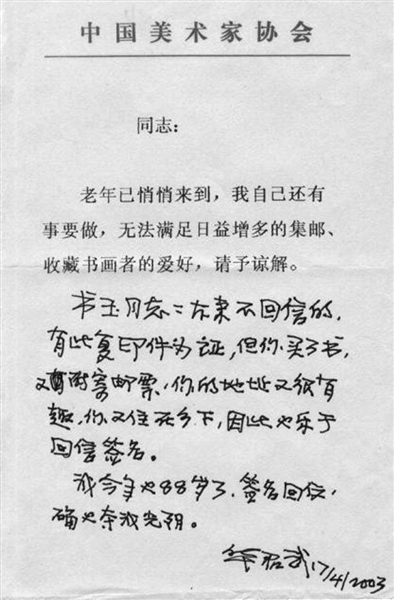 中国美术家协会
同志：
老年已悄悄来到，我自己还有
事要做，无法满足日益增多的集邮、
收藏书画者的爱好，请予谅解。
书玉同志：本来不回信的，
有此复印件为证，但你买了书，
又附寄邮票，你的地址又很有
趣，你又住在乡下，因此也乐于
回信签名。
我今年也88岁了，签名回信，
确也夺我光阴。
华君武 17/4/2003